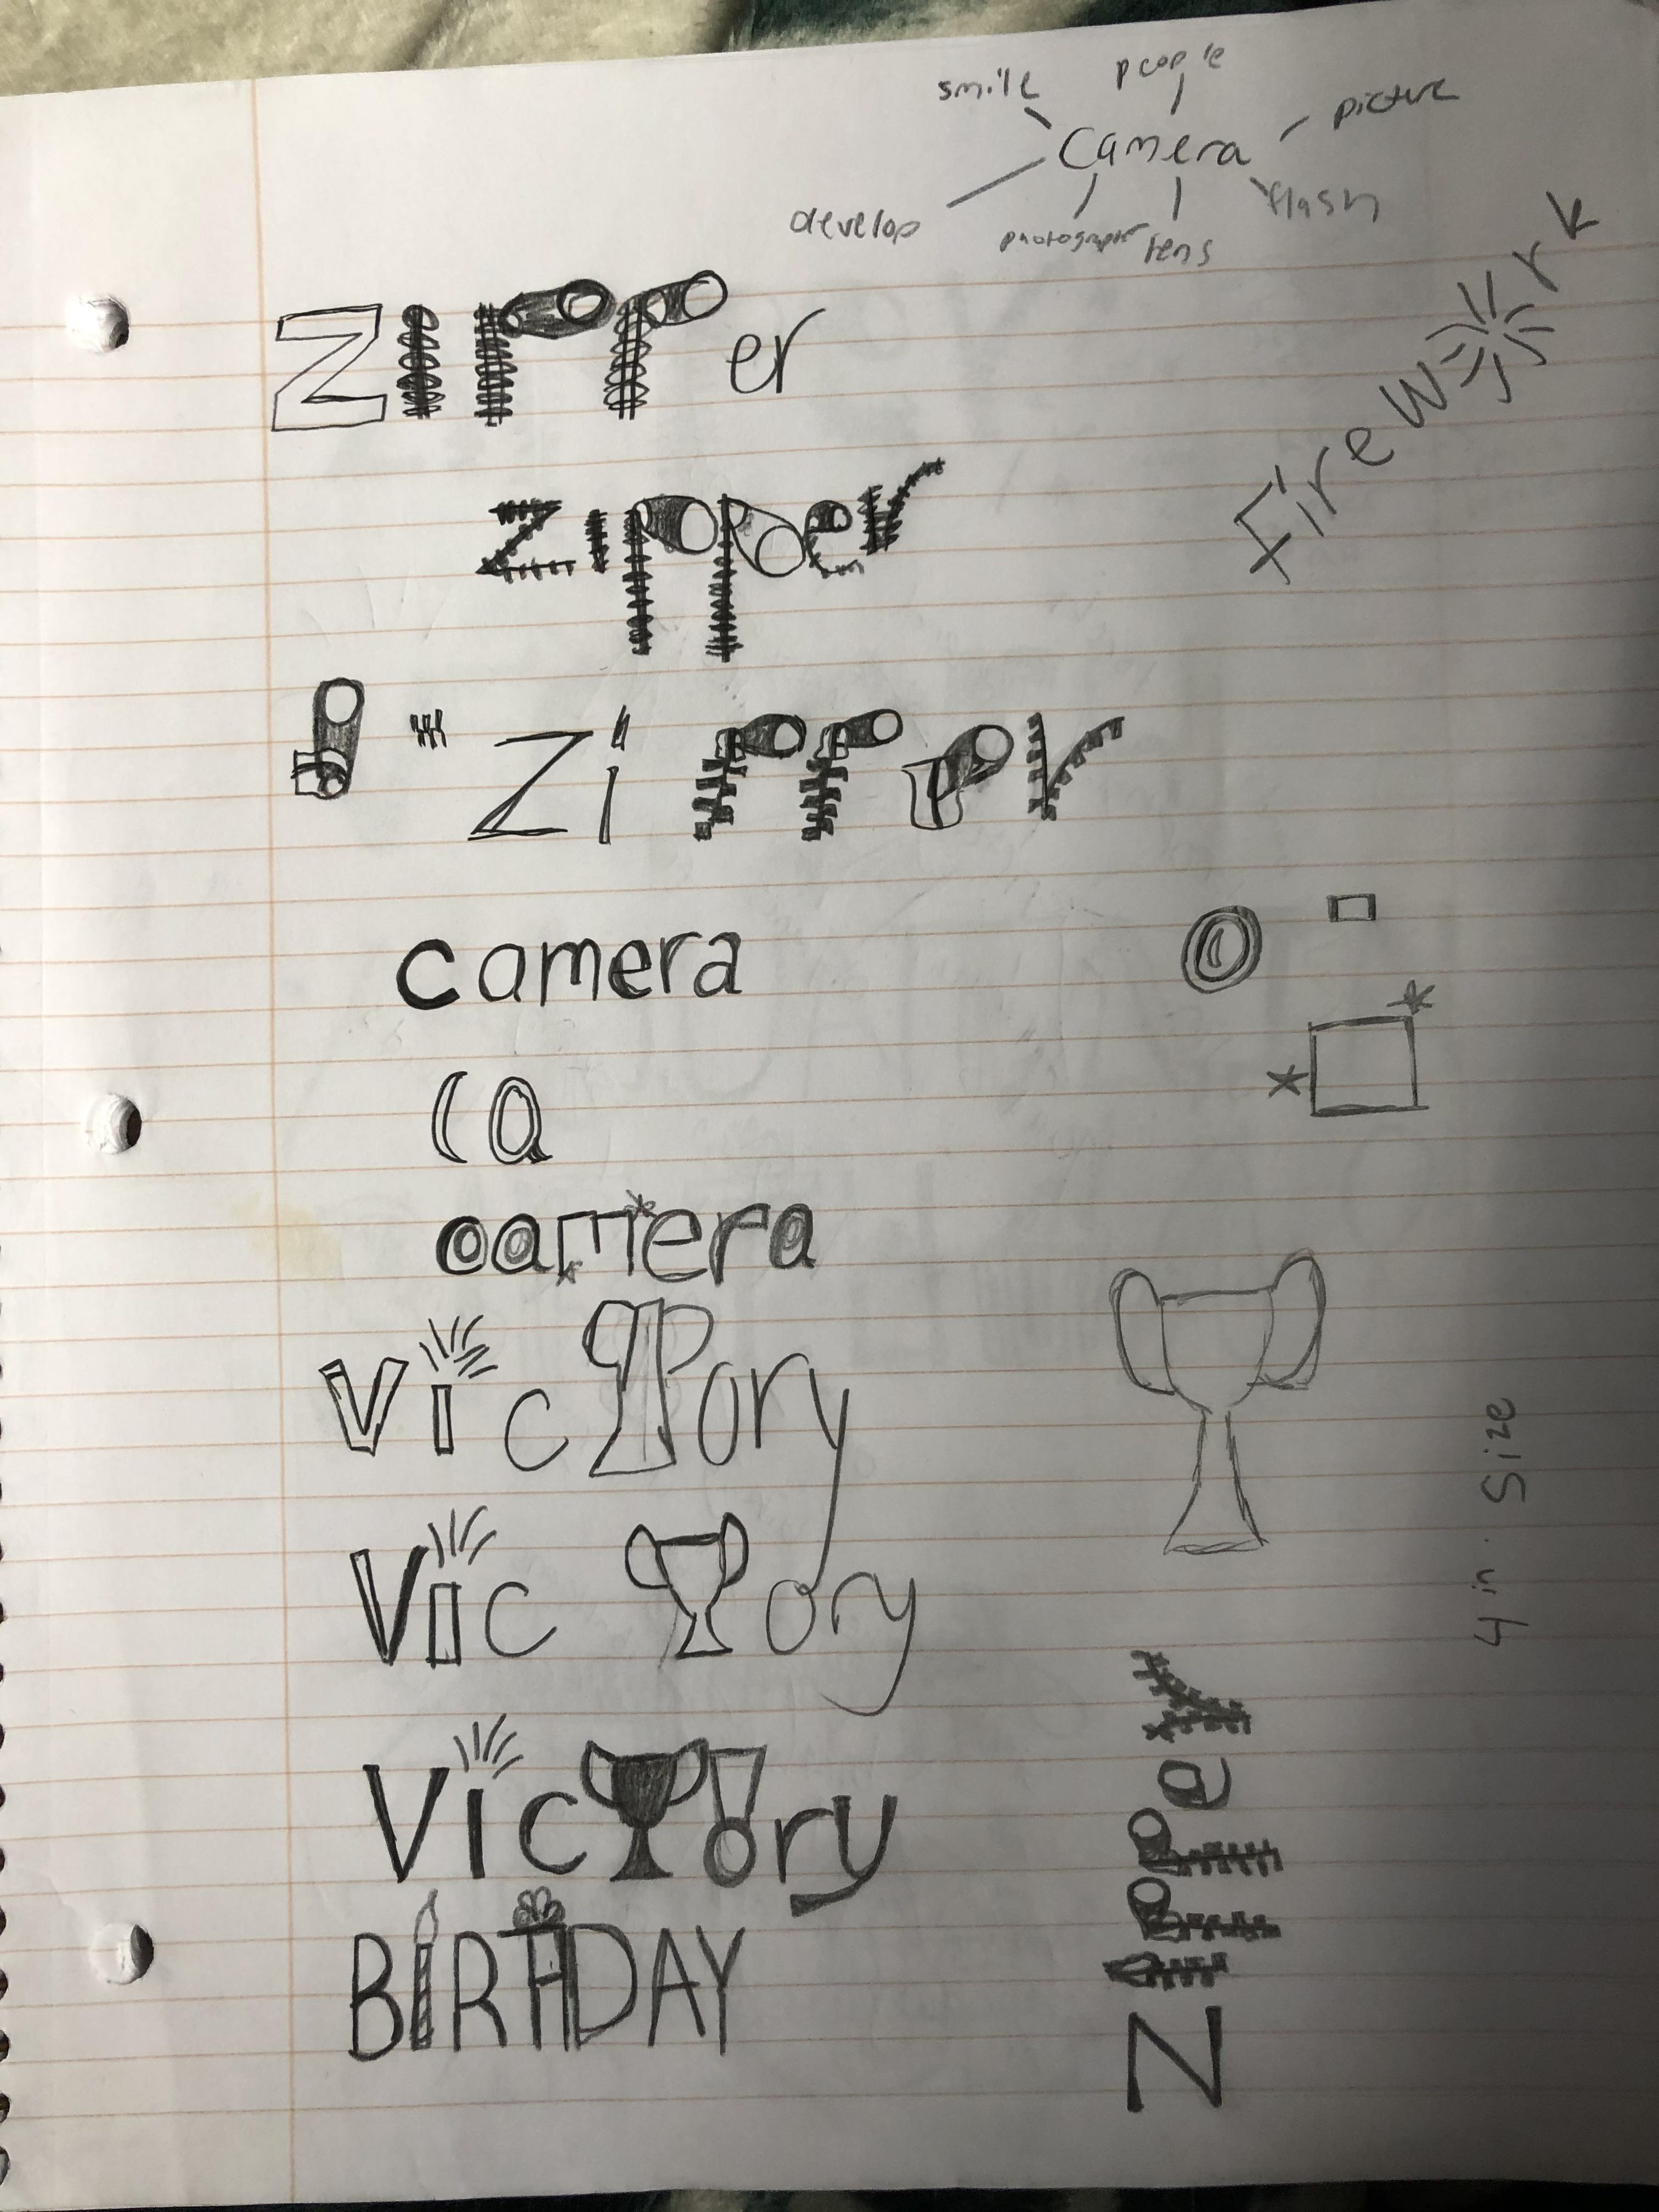 smile people
Camera picture
develop photographer lens flash
Firework
zipper
zipper
zipper
camera
ca
camera
Victory
Victory
Victory
BIRTHDAY
4 in. Size
zipper